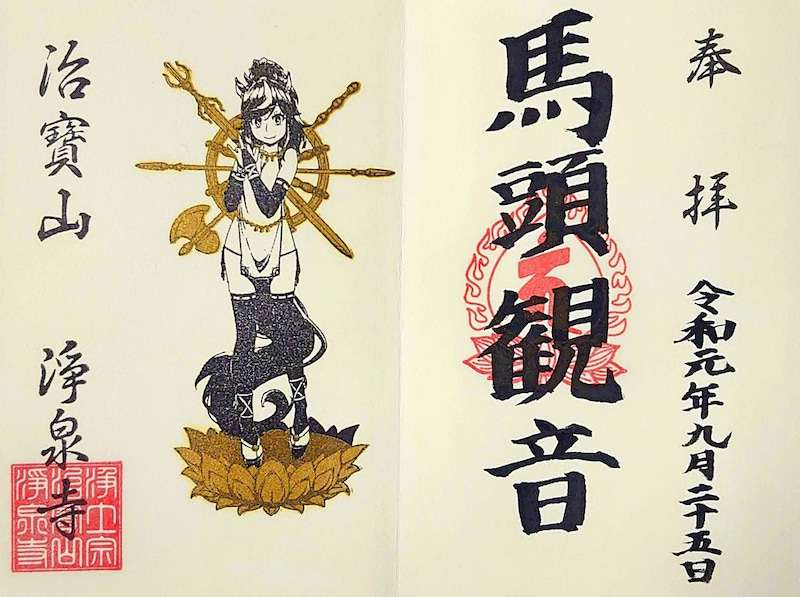 奉拝
令和元年九月二十五日
馬頭観音
治寳山
浄泉寺
浄土宗
治宝山
浄泉寺